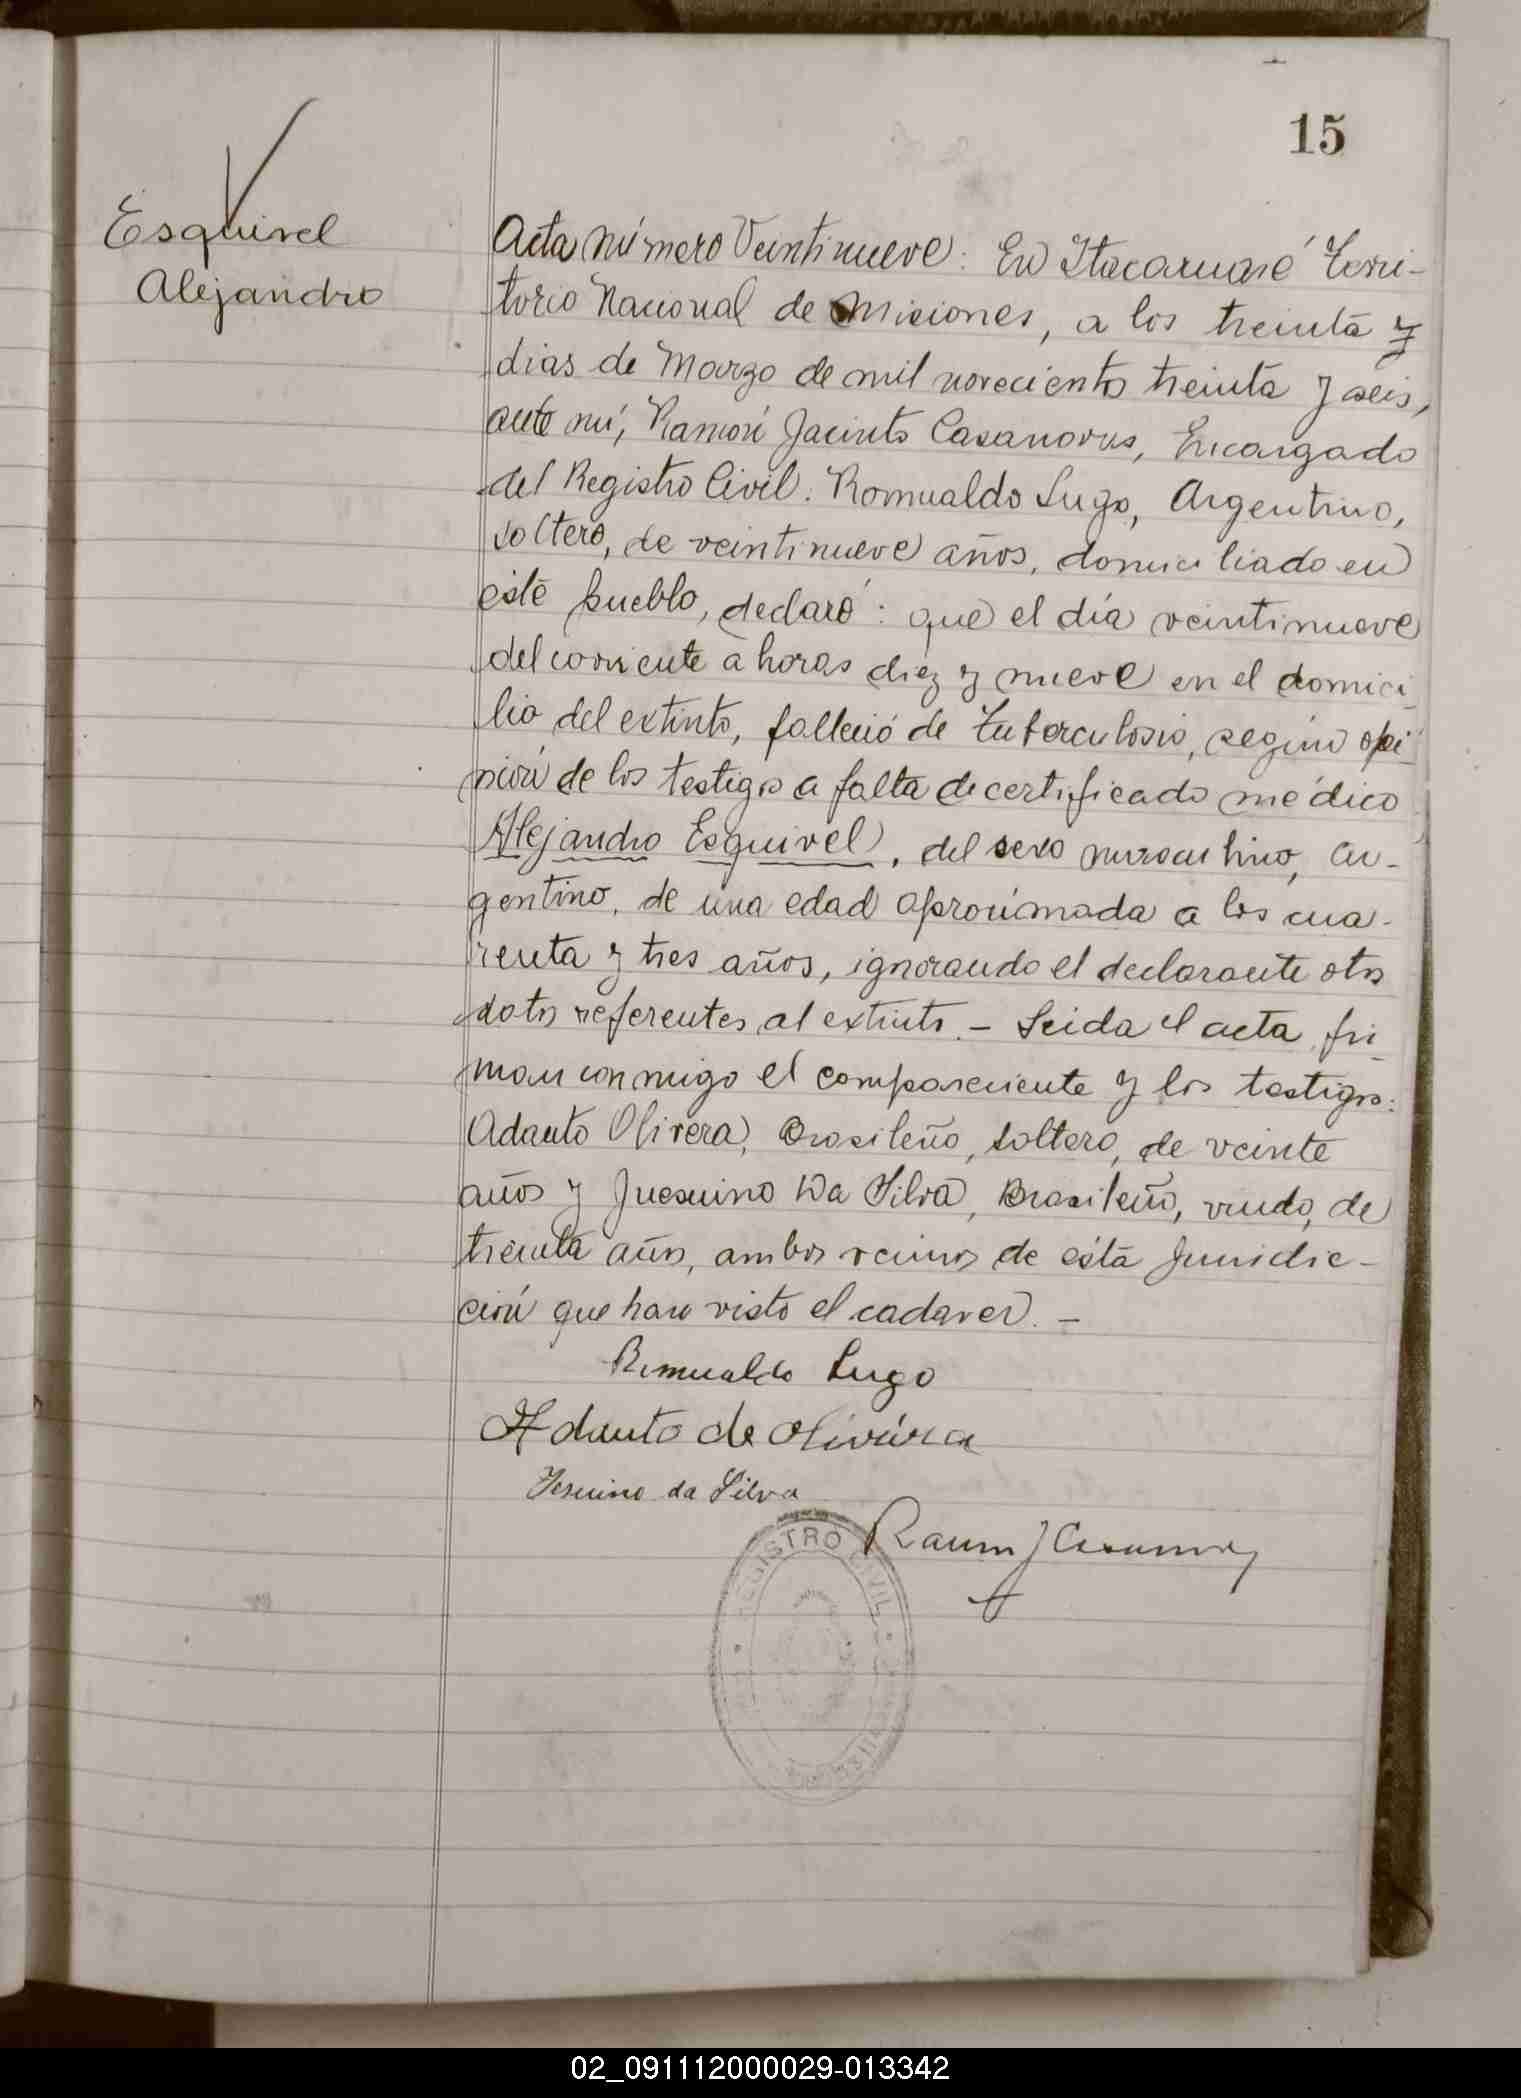 15
Esquivel
Alejandro
Acta número Veintinueve: En Itacaruaré Terri-
torio Nacional de Misiones, a los treinta y
dias de Marzo de mil novecientos treinta y seis,
ante mí, Ramón Jacinto Casanovas, Encargado
del Registro Civil: Romualdo Lugo, Argentino,
soltero, de veintinueve años, domiciliado en
éste pueblo, declaró: que el día veintinueve
del corriente a horas diez y nueve en el domici-
lio del extinto, falleció de Tuberculosis, según opi-
nión de los testigos a falta de certificado médico
Alejandro Esquivel, del sexo masculino, Ar-
gentino, de una edad aproximada a los cua-
renta y tres años, ignorando el declarante otros
datos referentes al extinto. - Leida el acta, fir-
man conmigo el compareciente y los testigos:
Adauto Olivera, Brasileño, soltero, de veinte
años y Juesuino Da Silva, Brasileño, viudo, de
treinta años, ambos vecinos de ésta jurisdic-
ción que han visto el cadaver. -
Romualdo Lugo
Adauto de Oliveira
Jesuino da Silva
Ramon J Casanovas
REGISTRO CIVIL
02_091112000029-013342